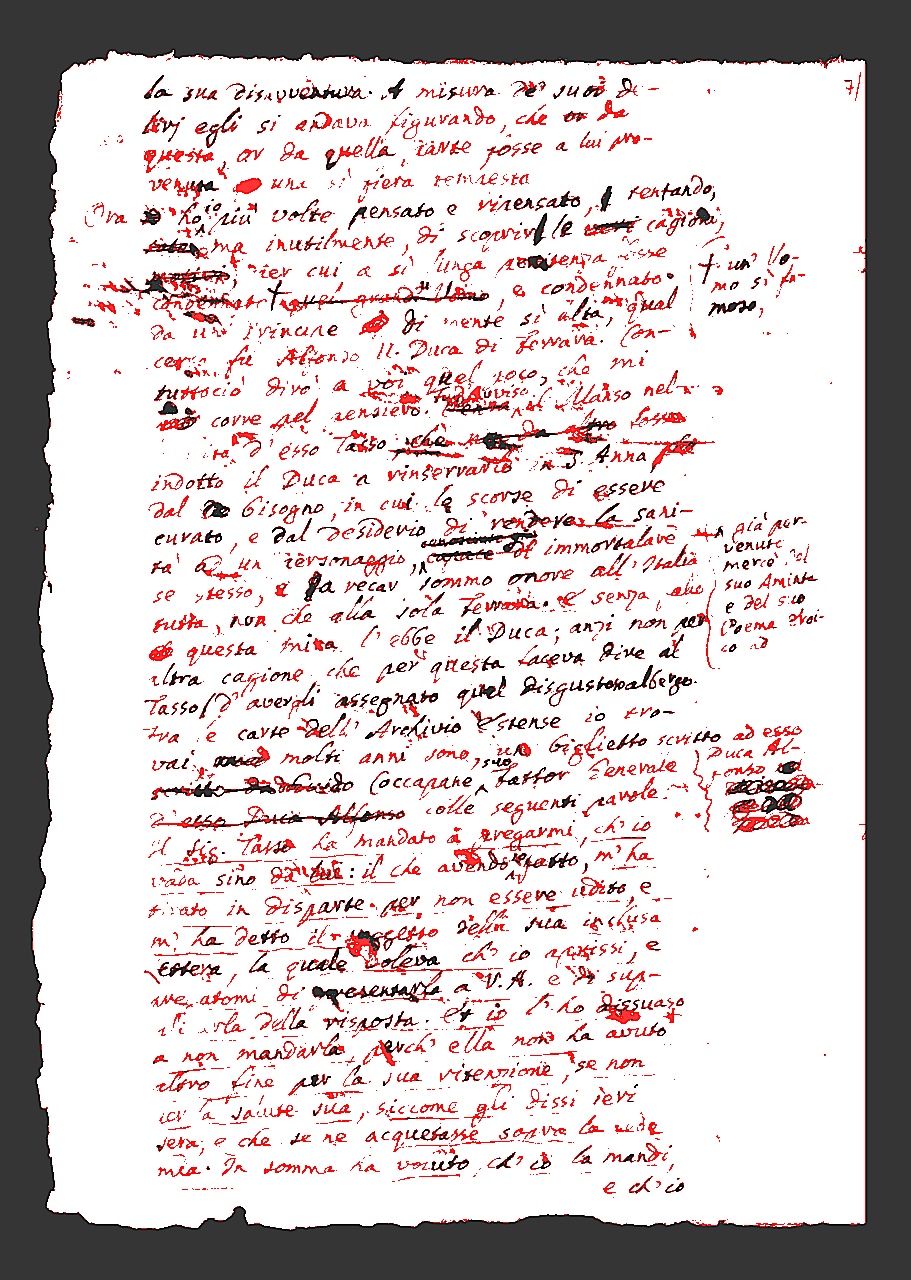 7/
la sua disavventura. A misura de' suoi de-
lirj egli si andava figurando, che or da
questa, or da quella parte fosse a lui pro-
venuta una sì fiera tempesta
Ora ho io più volte pensato e ripensato, tentando,
ma inutilmente, di scoprir le cagioni,
per cui a sì lunga penitenza fosse
condennato † quel grand' Uomo, e condennato
† un' Uo-
mo sì fa-
moso,
da un Principe di mente sì alta, qual
certo fu Alfonso II. Duca di Ferrara. Con-
tuttociò dirò a voi quel poco, che mi
corre pel pensiero. Fu d'avviso il Manso nel-
d' esso Tasso che fosse
indotto il Duca a rinserrarlo in S. Anna
dal bisogno, in cui le scorse di essere
curato, e dal desiderio di rendere la sani-
tà a un personaggio, capace d' immortalare
già per-
venuto
mercè del
suo Aminta
e del suo
Poema Eroi-
co ad
se stesso, e a recar sommo onore all' Italia
tutta, non che alla sola Ferrara. E senza
questa mira l' ebbe il Duca; anzi non per
altra cagione, che per questa faceva dire al
Tasso d' avergli assegnato quel disgustoso albergo.
Tra le carte dell' Archivio Estense io tro-
vai, molti anni sono, un biglietto scritto ad esso
Duca Al-
fonso
Coccapane suo Fattor Generale
d' esso Duca Alfonso colle seguenti parole.
il Sig. Tasso ha mandato a pregarmi, ch' io
vada sino da lui: il che avendo fatto, m' ha
tirato in disparte per non essere udito, e
m' ha detto il soggetto della sua inclusa
lettera, la quale voleva ch' io aprissi, e
di presentarla a V. A. e di sup-
della risposta. Et io l' ho dissuaso
a non mandarla, perch' ella non ha avuto
altro fine per la sua ritenzione, se non
per la salute sua, siccome gli dissi jeri
sera, e che se ne acquetasse sopra la fede
mia. In somma ha voluto, ch' io la mandi,
e ch' io